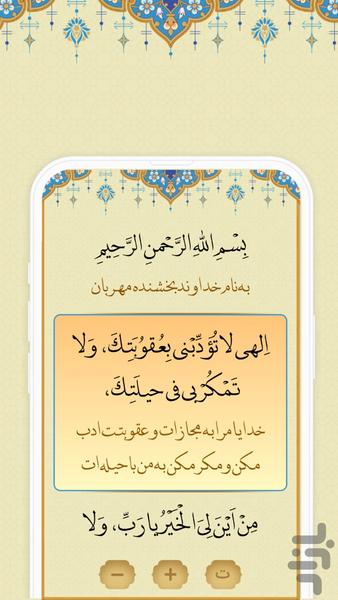 بِسْمِ اللهِ الرَّحْمنِ الرَّحِيمِ
به نام خداوند بخشنده مهربان
اِلهى لا تُؤَدِّبْنى بِعُقُوبَتِكَ، وَلا
تَمْكُرْ بى فى حيلَتِكَ،
خدايا مرا به مجازات و عقوبتت ادب
مكن و مكر مكن به من با حيله ات
مِنْ اَيْنَ لِىَ الْخَيْرُ يا رَبِّ، وَلا
ت
بازار